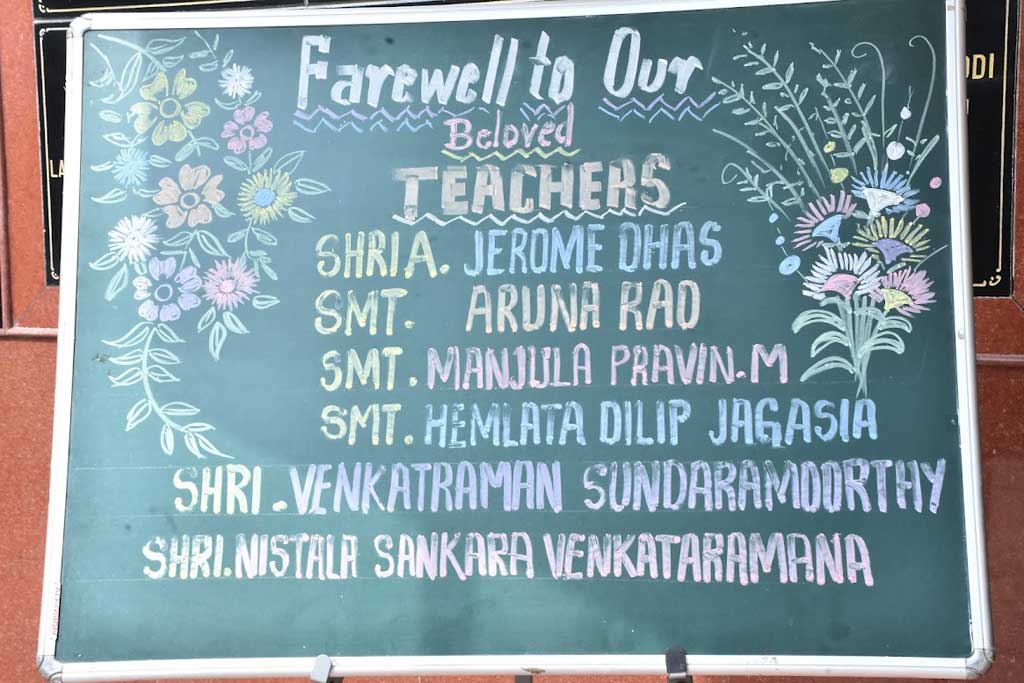 Farewell to Our
Beloved
TEACHERS
SHRI A. JEROME DHAS
SMT. ARUNA RAO
SMT. MANJULA PRAVIN.M
SMT. HEMLATA DILIP JAGASIA
SHRI. VENKATRAMAN SUNDARAMOORTHY
SHRI. NISTALA SANKARA VENKATARAMANA